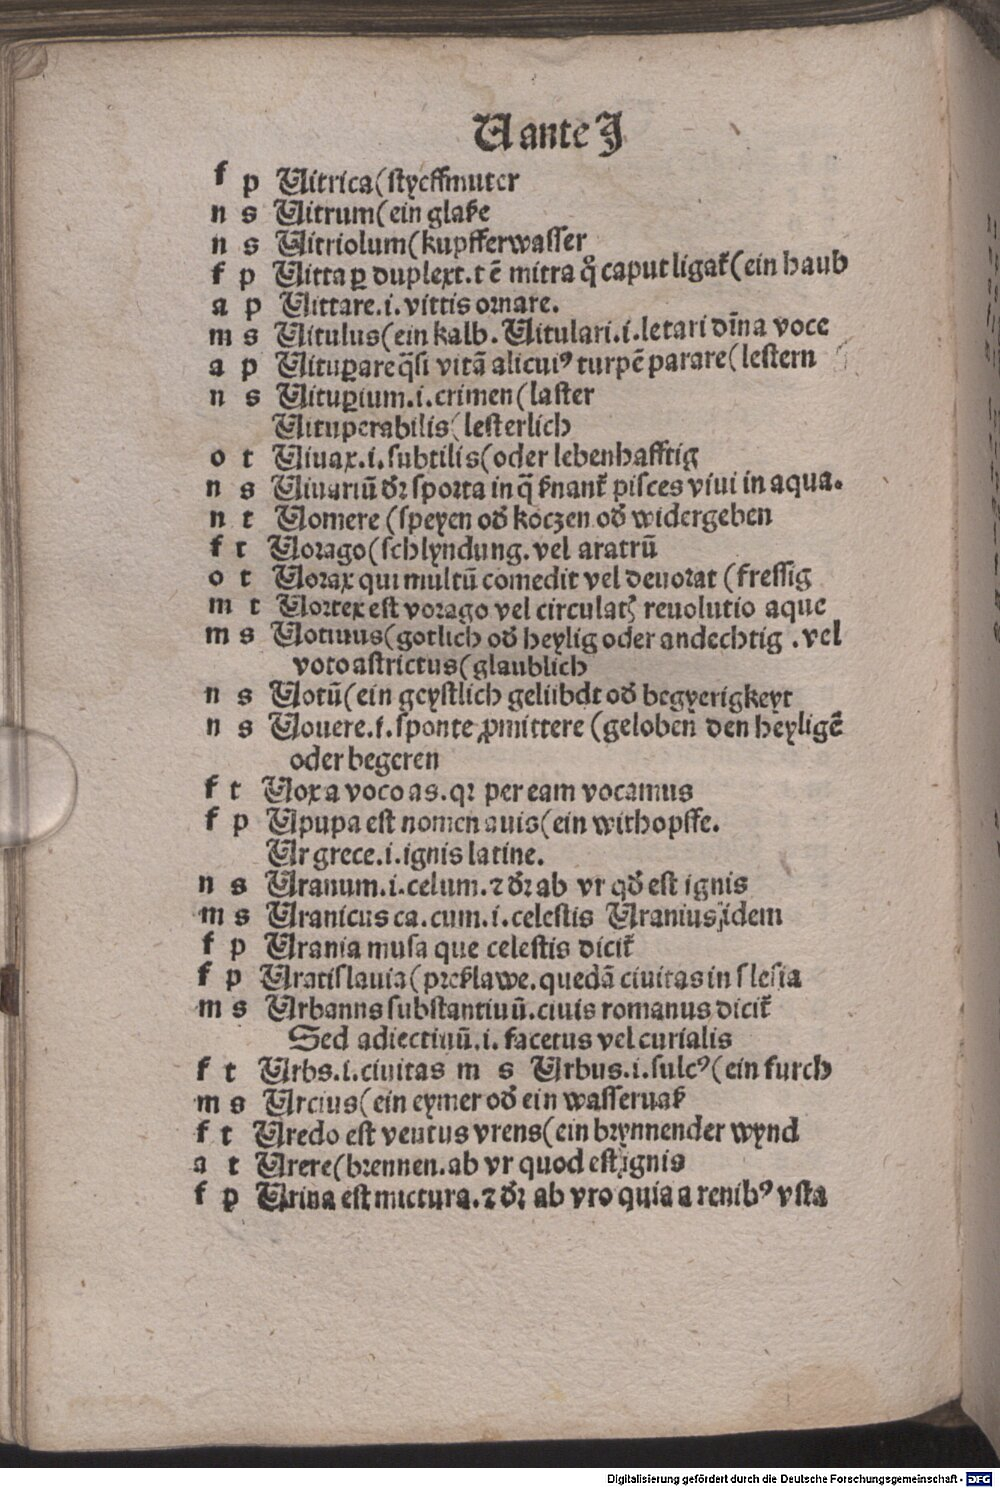 V ante J
f p Vitrica (styeffmuter
n s Vitrum (ein glaß
n s Vitriolum (kupfferwasser
f p Vitta p duplext. t ē mitra q̊ caput ligat᷑ (ein haub
a p Vittare .i. vittis ornare.
m s Vitulus (ein kalb. Vitulari .i. letari dīna voce
a p Vituꝑare q̄si vitā alicuiꝰ turpē parare (lestern
n s Vituꝑium .i. crimen (laster
Vituperabilis (lesterlich
o t Viuax .i. subtilis (oder lebenhafftig
n s Viuariū dr̄ sporta in q̄ ßnant᷑ pisces viui in aqua.
n t Vomere (speyen od̛ koczen od̛ widergeben
f t Vorago (schlyndung. vel aratrū
o t Vorax qui multū comedit vel deuorat (fressig
m t Vortex est vorago vel circulatꝫ reuolutio aque
m s Votiuus (gotlich od̛ heylig oder andechtig . vel
voto astrictus (glaublich
n s Votū (ein geystlich gelübdt od̛ begyerigkeyt
n s Vouere .i. sponte ꝓmittere (geloben den heyligē
oder begeren
f t Vox a voco as. qꝛ per eam vocamus
f p Vpupa est nomen auis (ein withopffe.
Vr grece .i. ignis latine.
n s Vranum .i. celum. ⁊ dr̄ ab vr qd̛ est ignis
m s Vranicus ca. cum .i. celestis Vranius idem
f p Vrania musa que celestis dicit᷑
f p Vratislauia (preßlawe. quedā ciuitas in slesia
m s Vrbanns substantiuū. ciuis romanus dicit᷑
Sed adiectiuū .i. facetus vel curialis
f t Vrbs .i. ciuitas m s Vrbus .i. sulcꝰ (ein furch
m s Vrcius (ein eymer od̛ ein wasseruaß
f t Vredo est ventus vrens (ein brynnender wynd
a t Vrere (brennen. ab vr quod est ignis
f p Vrina est mictura. ⁊ dr̄ ab vro quia a renibꝰ vsta
Digitalisierung gefördert durch die Deutsche Forschungsgemeinschaft - DFG